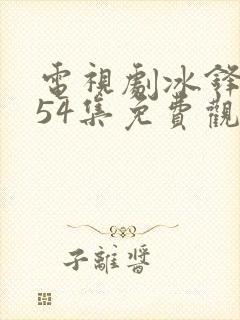 電視劇冰鋒
54集免費觀
子離醬